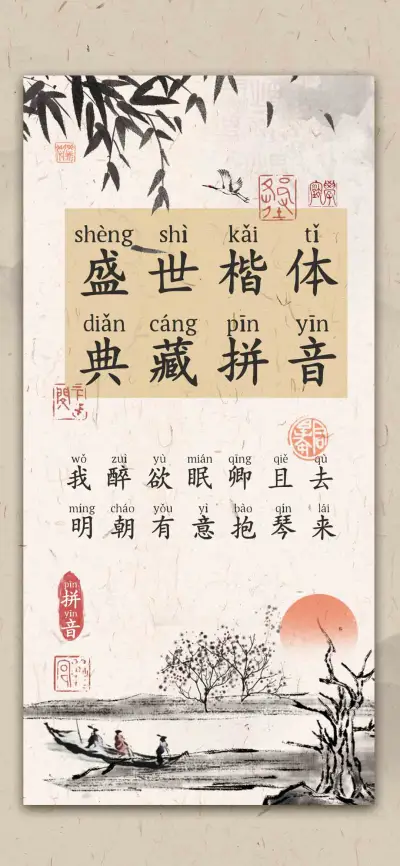 shèng shì kǎi tǐ
盛世楷体
diǎn cáng pīn yīn
典藏拼音
wǒ zuì yù mián qīng qiě qù
我醉欲眠卿且去
míng cháo yǒu yì bào qín lái
明朝有意抱琴来
pīn
拼
yīn
音